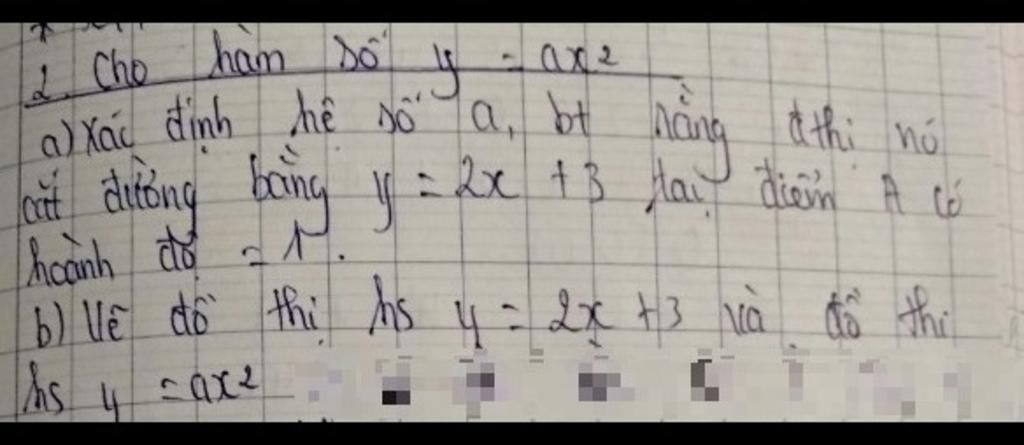 2. Cho hàm số y = ax²
a) Xác định hệ số a, bt rằng đthị nó
cắt đường bằng y = 2x + 3 tại điểm A có
hoành độ = 1.
b) Vẽ đồ thị hs y = 2x + 3 và đồ thị
hs y = ax²